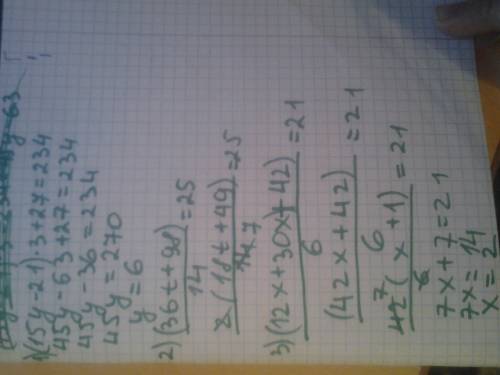 1)(15y-21)·3+27=234
45y-63+27=234
45y-36=234
45y=270
y=6
2)(36t+98)/14=25
2(18t+49)/14 7=25
3)(12x+30x+42)/6=21
(42x+42)/6=21
42 7(x+1)/6=21
7x+7=21
7x=14
x=2